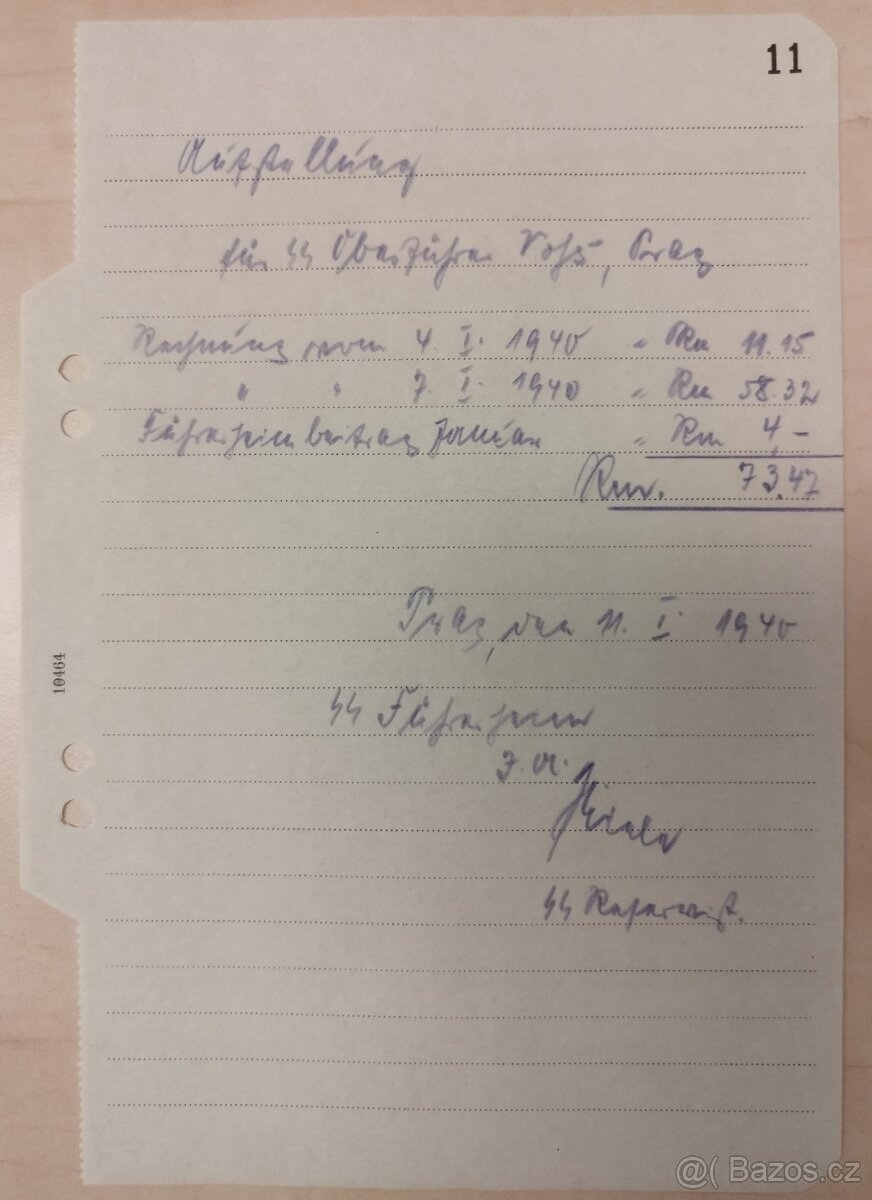 11
Aufstellung
für SS Oberführer Voß, Prag
Rechnung vom 4. I. 1940 = Rm 11.15
" " 7. I. 1940 = Rm 58.32
Führerheimbeitrag Januar = Rm 4,-
Rm. 73.47
Prag, den 11. I. 1940
SS Führerheim
I. A.
SS Reservist.
10464
@( Bazos.cz